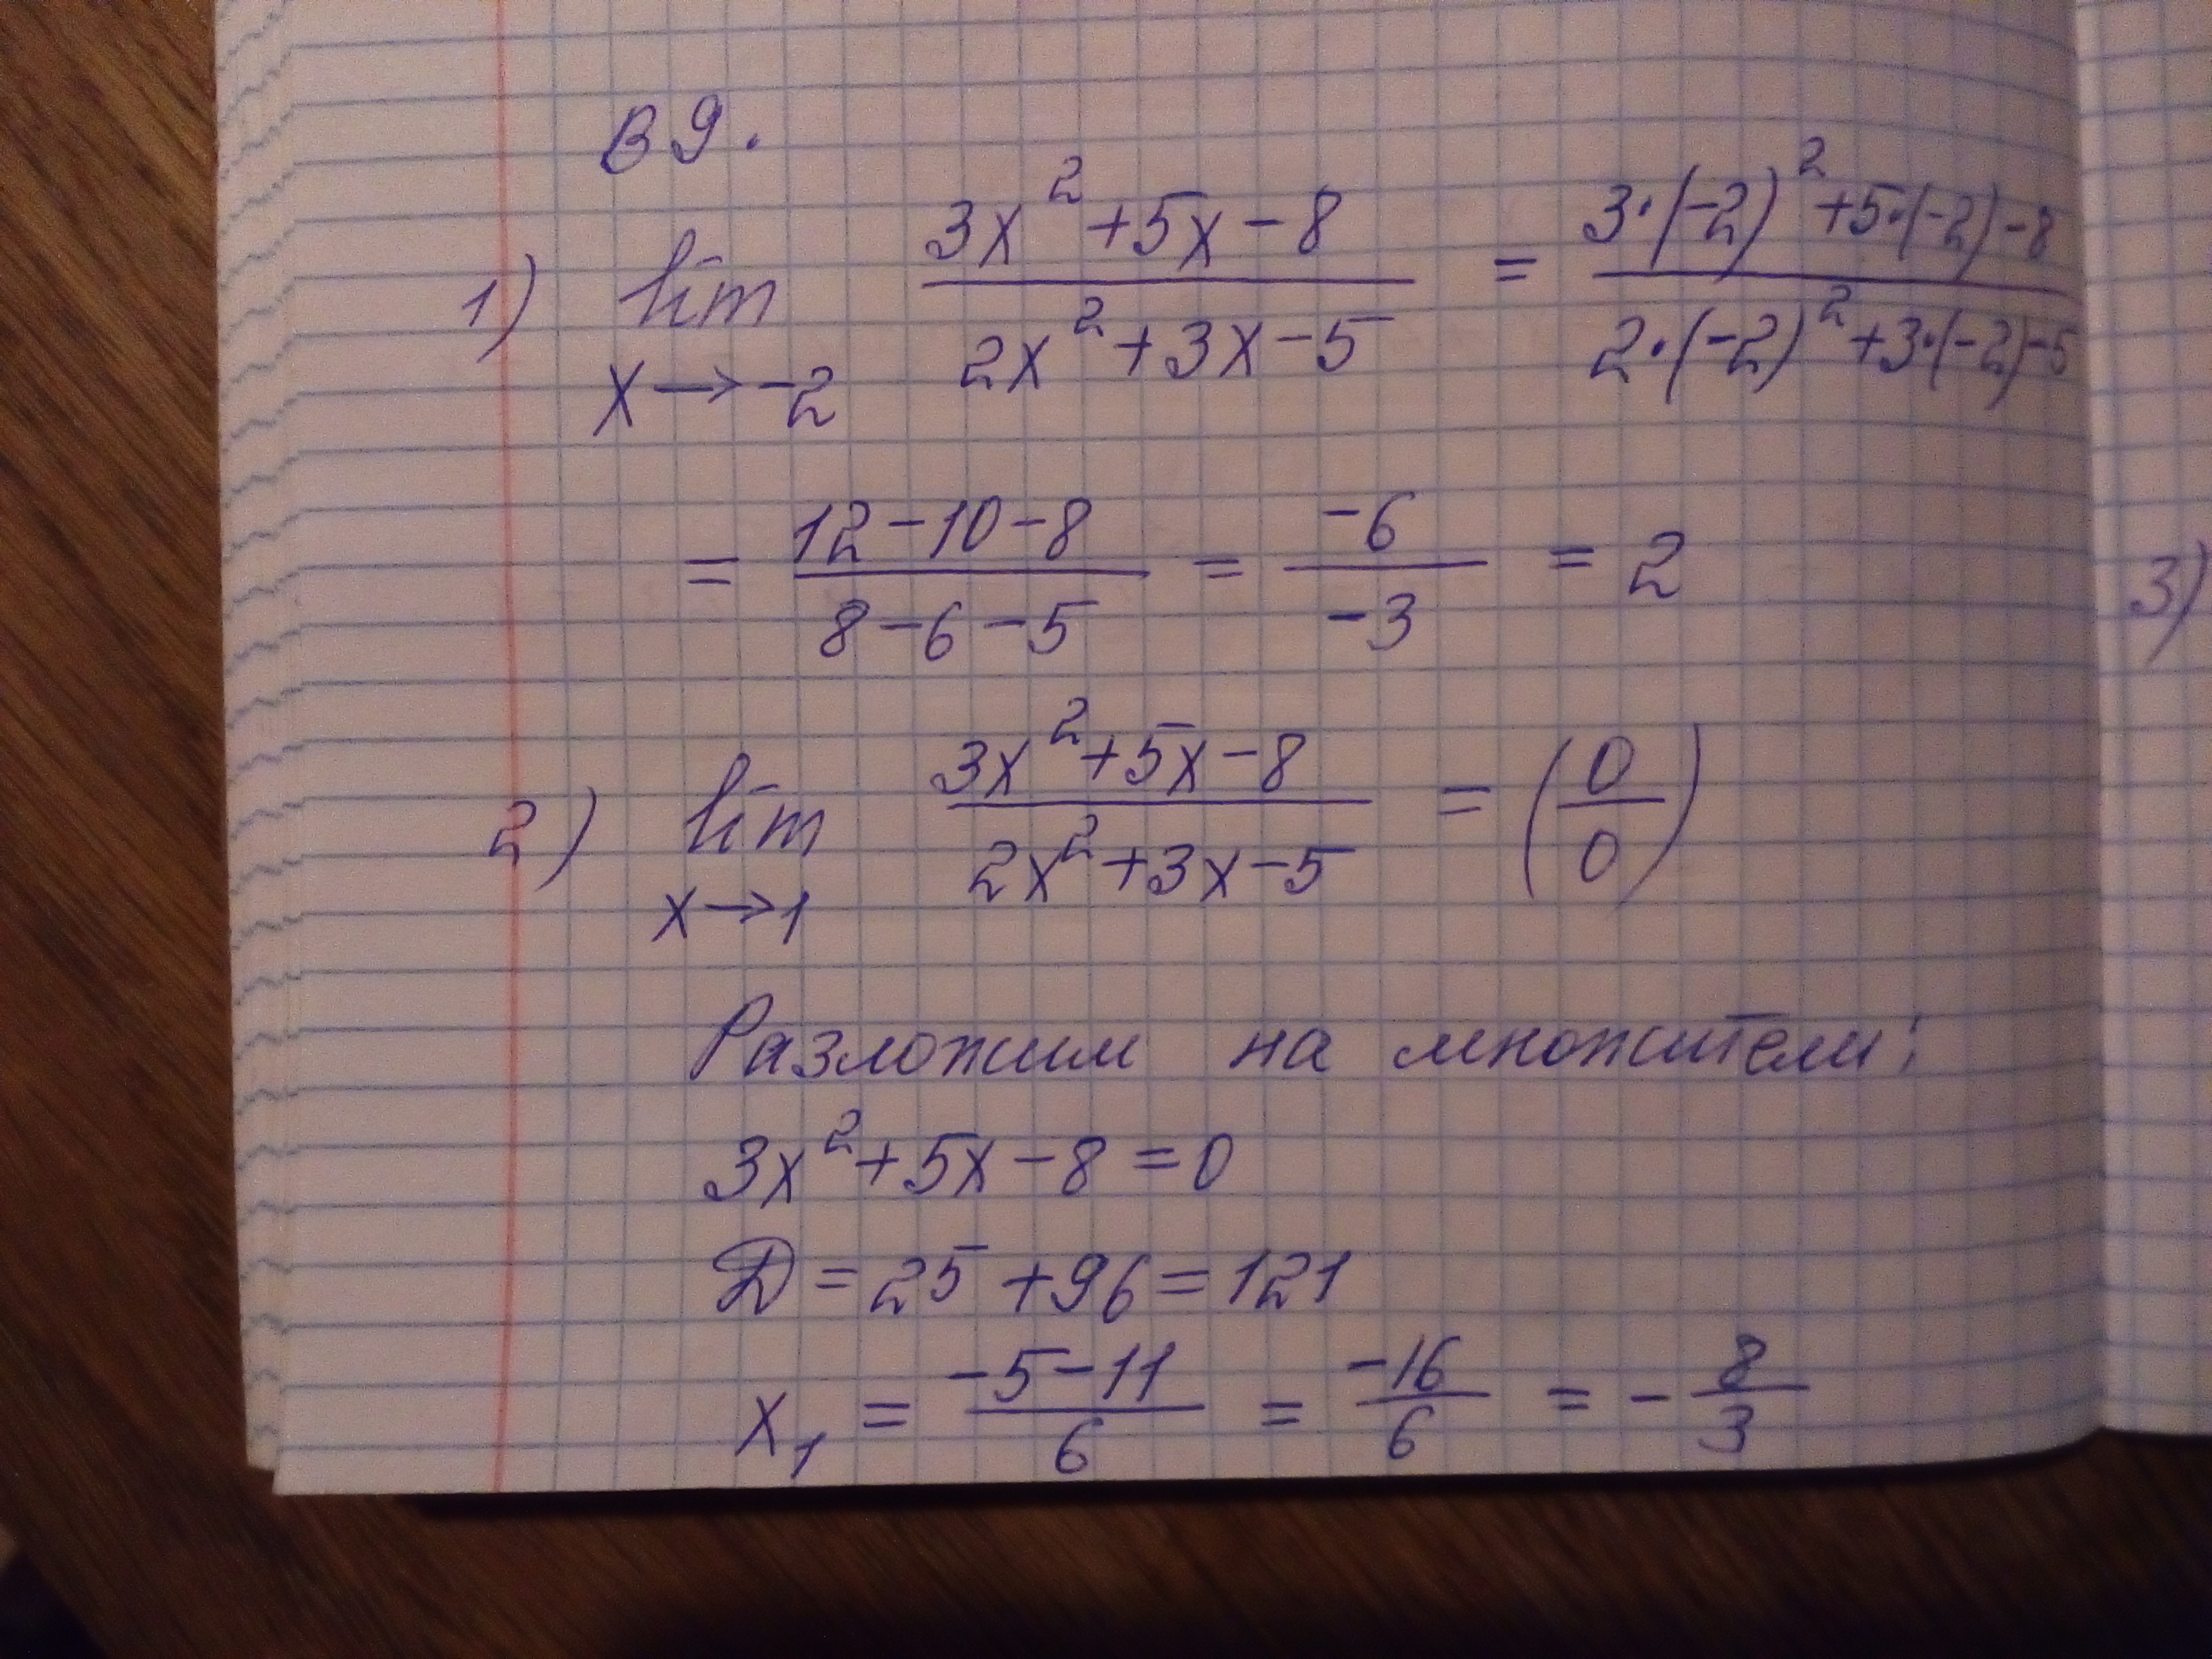 В 9.
1) lim x→-2 (3x²+5x-8)/(2x²+3x-5) = (3·(-2)²+5·(-2)-8)/(2·(-2)²+3·(-2)-5)
= (12-10-8)/(8-6-5) = -6/-3 = 2
2) lim x→1 (3x²+5x-8)/(2x²+3x-5) = (0/0)
Разложим на множители:
3x²+5x-8=0
Д=25+96=121
x₁ = (-5-11)/6 = -16/6 = -8/3
3)